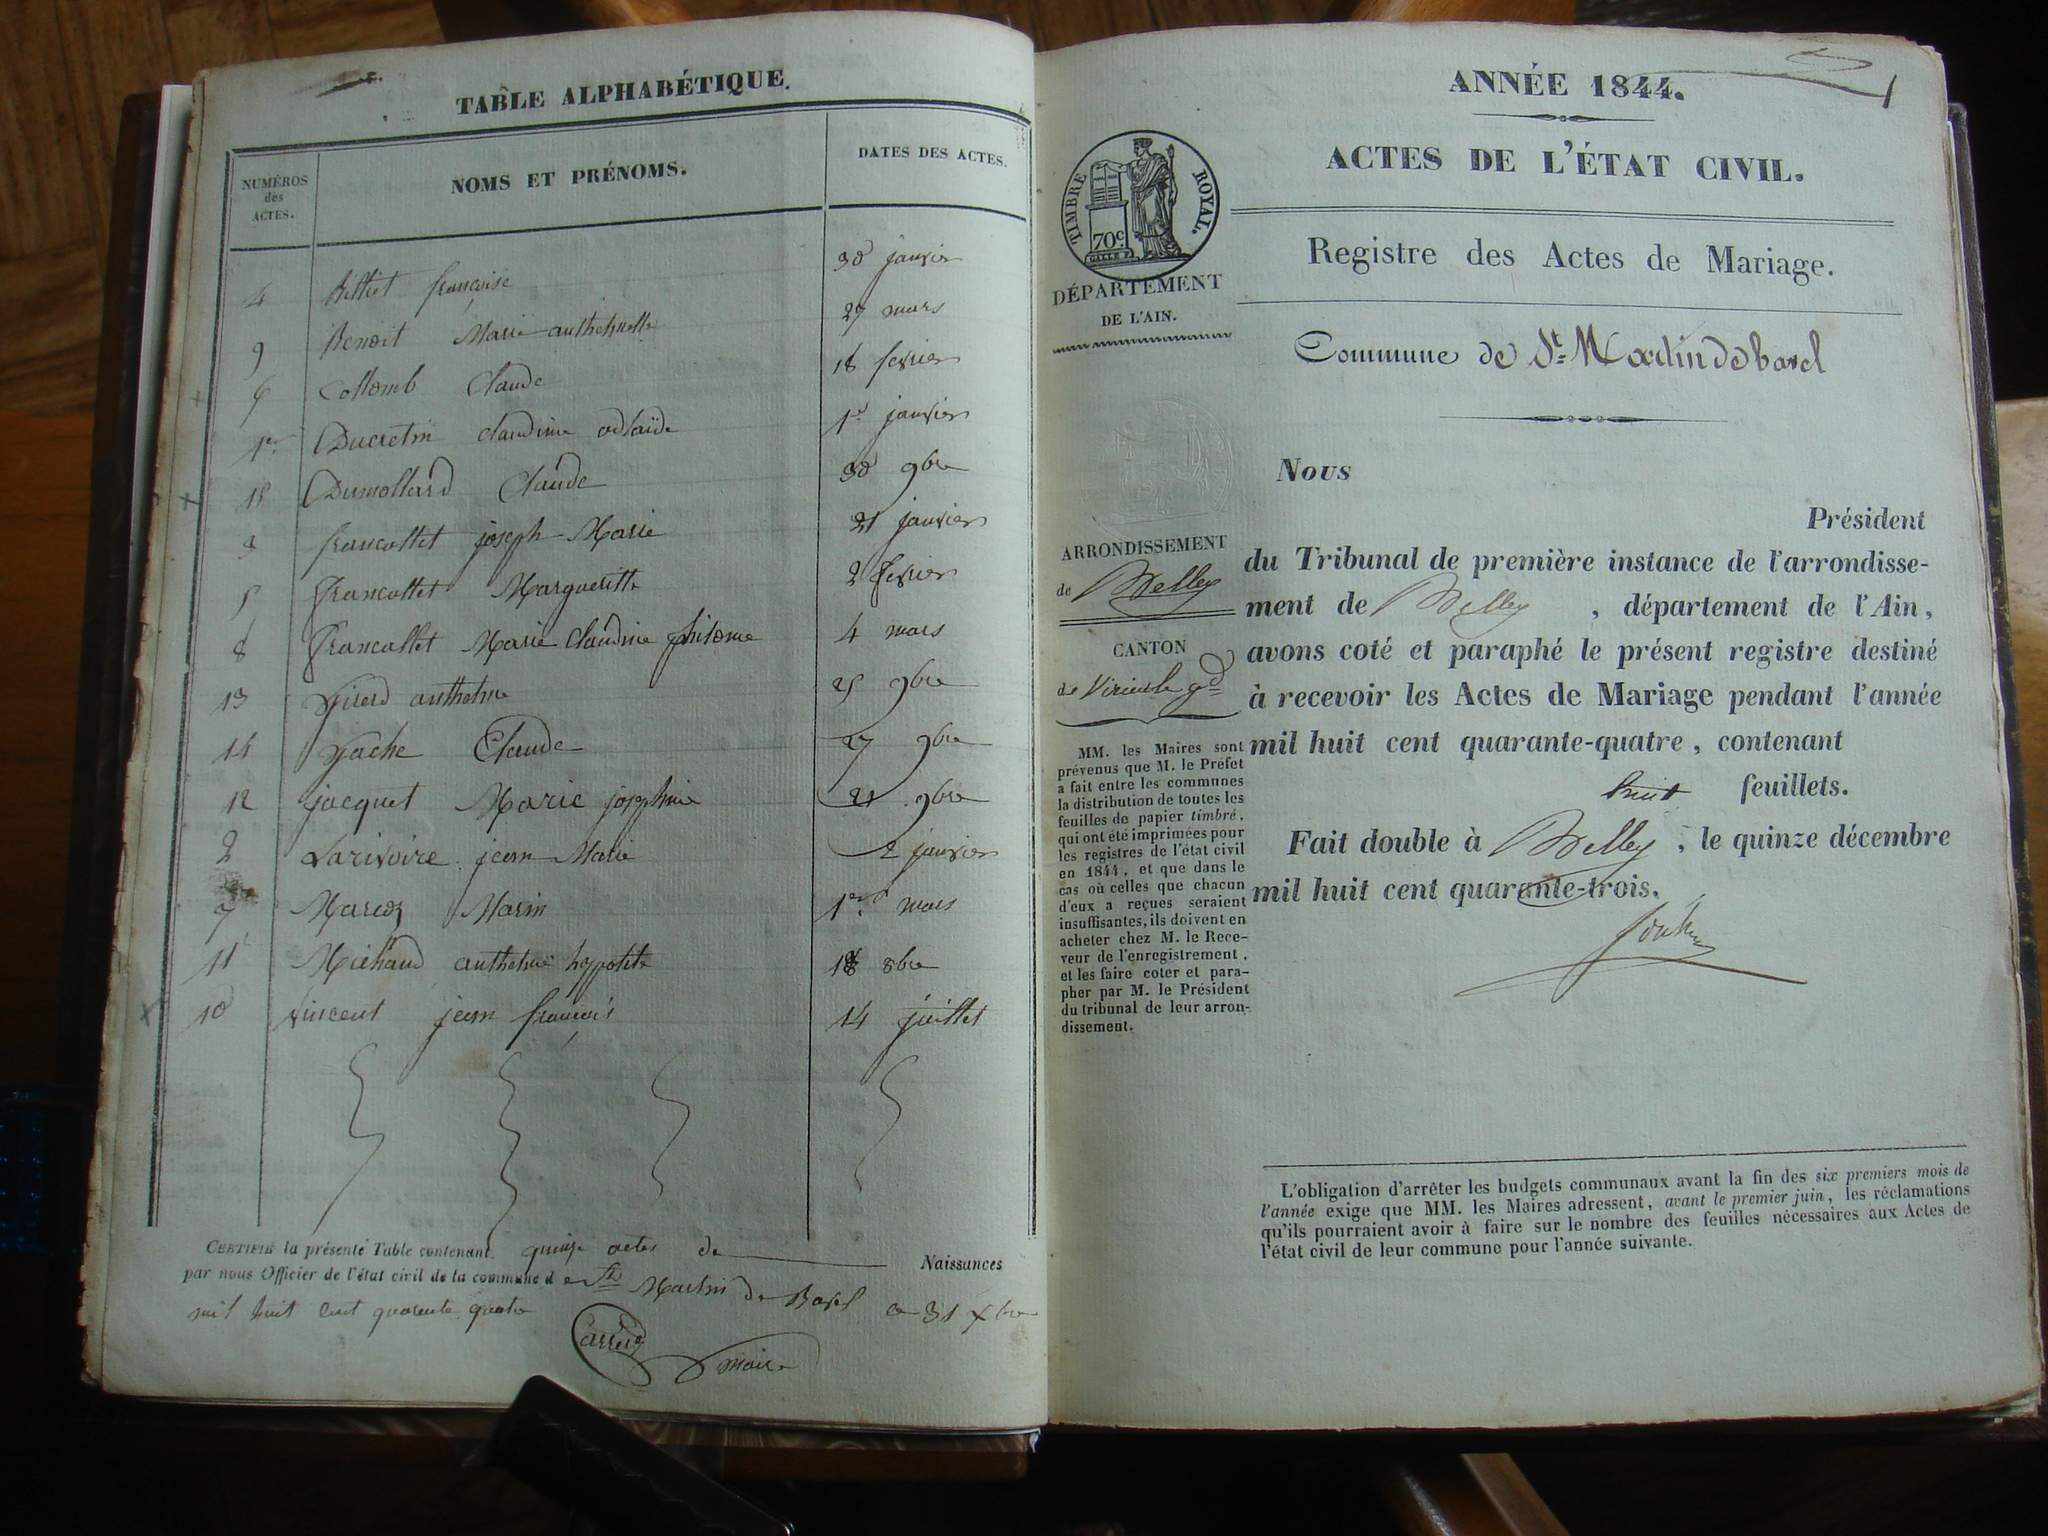 TABLE ALPHABÉTIQUE.
NUMÉROS des ACTES.
NOMS ET PRÉNOMS.
DATES DES ACTES.
4 Billiet françoise 30 janvier
9 Benoit Marie anthelmette 27 mars
6 Collomb Claude 18 fevrier
1er Ducretin claudine adelaïde 1er janvier
15 Dumollard Claude 30 9bre
3 francollet joseph-Marie 21 janvier
5 francollet Margueritte 2 fevrier
8 francollet Marie Claudine philome 4 mars
13 Girerd anthelme 25 9bre
14 Claude 27 9bre
12 jacquet Marie josephine 21 9bre
2 Larivoire jean Marie 2 janvier
7 Marcoz Marin 1er mars
11 Michaud anthelme hyppolite 18 8bre
10 Vincent jean françois 14 juillet
CERTIFIÉ la présente Table contenant quinze actes de Naissances
par nous Officier de l'état civil de la commune de St Martin de Bavel ce 31 Xbre
mil huit cent quarente quatre
maire
ANNÉE 1844.
1
ACTES DE L'ÉTAT CIVIL.
TIMBRE ROYAL.
70c
DÉPARTEMENT
DE L'AIN.
Registre des Actes de Mariage.
Commune de St Martin de bavel
ARRONDISSEMENT
de Belley
CANTON
de Virieu le gd
MM. les Maires sont
prévenus que M. le Préfet
a fait entre les communes
la distribution de toutes les
feuilles de papier timbré,
qui ont été imprimées pour
les registres de l'état civil
en 1844, et que dans le
cas où celles que chacun
d'eux a reçues seraient
insuffisantes, ils doivent en
acheter chez M. le Rece-
veur de l'enregistrement,
et les faire coter et para-
pher par M. le Président
du tribunal de leur arron-
dissement.
Nous
Président
du Tribunal de première instance de l'arrondisse-
ment de Belley, département de l'Ain,
avons coté et paraphé le présent registre destiné
à recevoir les Actes de Mariage pendant l'année
mil huit cent quarante-quatre, contenant
huit feuillets.
Fait double à Belley, le quinze décembre
mil huit cent quarante-trois.
L'obligation d'arrêter les budgets communaux avant la fin des six premiers mois de
l'année exige que MM. les Maires adressent, avant le premier juin, les réclamations
qu'ils pourraient avoir à faire sur le nombre des feuilles nécessaires aux Actes de
l'état civil de leur commune pour l'année suivante.